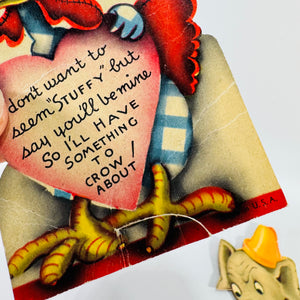 don't want to
seem "STUFFY" but
say you'll be mine
SO I'LL HAVE
SOMETHING
TO
CROW
ABOUT!
U.S.A.